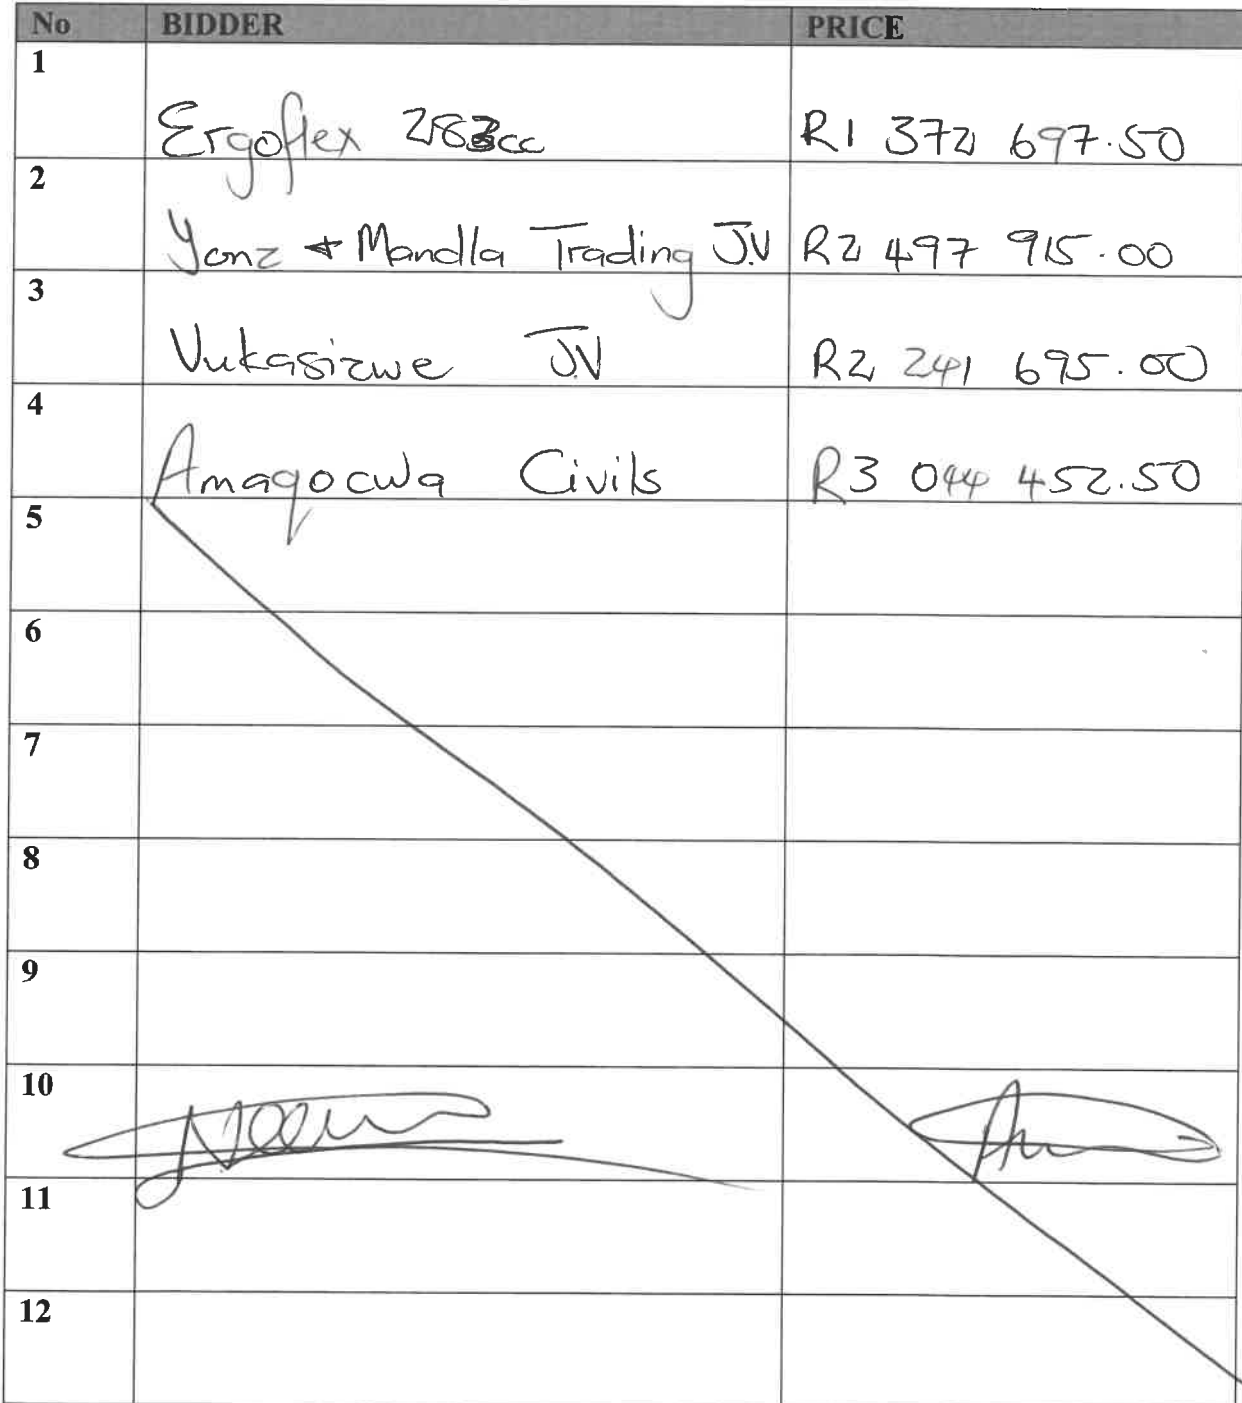 No BIDDER PRICE
1
Ergoflex 283cc R1 372 697.50
2
Yonz + Mandla Trading J.V R2 497 915.00
3
Vukasizwe J.V R2 241 695.00
4
Amaqocwa Civils R3 044 452.50
5
6
7
8
9
10
11
12